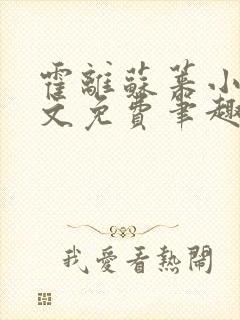 霍離蘇菜小
文免費筆趣
我愛看熱鬧